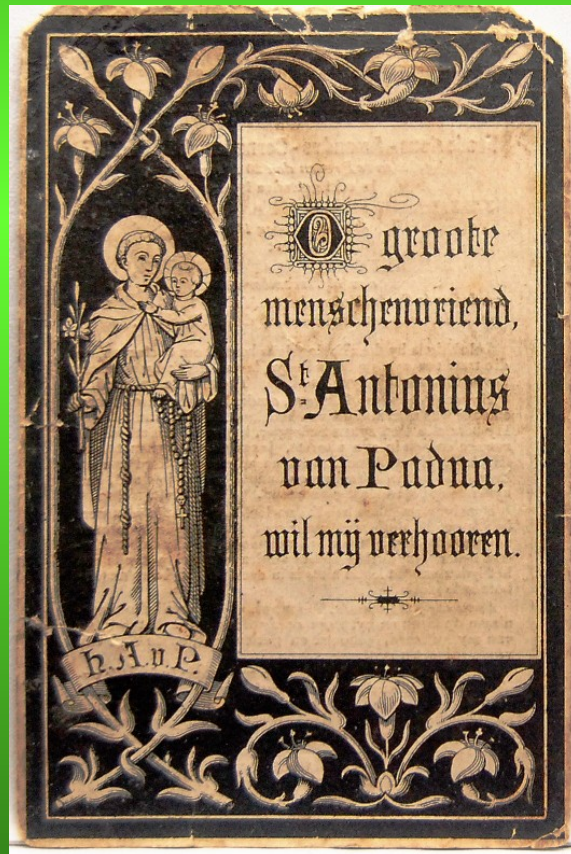 O groote
menschenvriend,
St. Antonius
van Padua,
wil mij verhooren.
h. A. v. P.